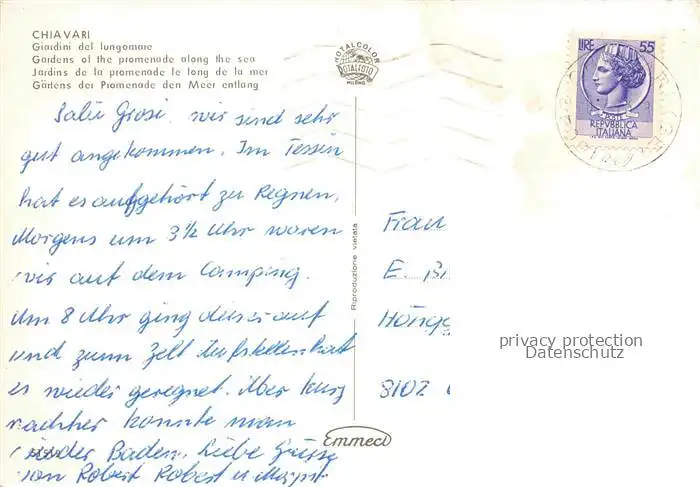 CHIAVARI
Giardini del lungomare
Gardens of the promenade along the sea
Jardins de la promenade le long de la mer
Gärten der Promenade den Meer entlang
ROTALCOLOR
ROTALFOTO
MILANO
LIRE 55
REPVBBLICA
ITALIANA
Salü Grosi, wir sind sehr
gut angekommen. Im Tessin
hat es aufgehört zu Regnen.
Morgens um 3½ Uhr waren
wir auf dem Camping.
Um 8 Uhr ging dieser auf
und zum Zelt Aufstellen hat
es wieder geregnet. Aber kurz
nachher konnte man
wieder Baden. Liebe Grüsse
von Robert Robert u
Riproduzione vietata
Frau
E.
8102
privacy protection
Datenschutz
Emmeci